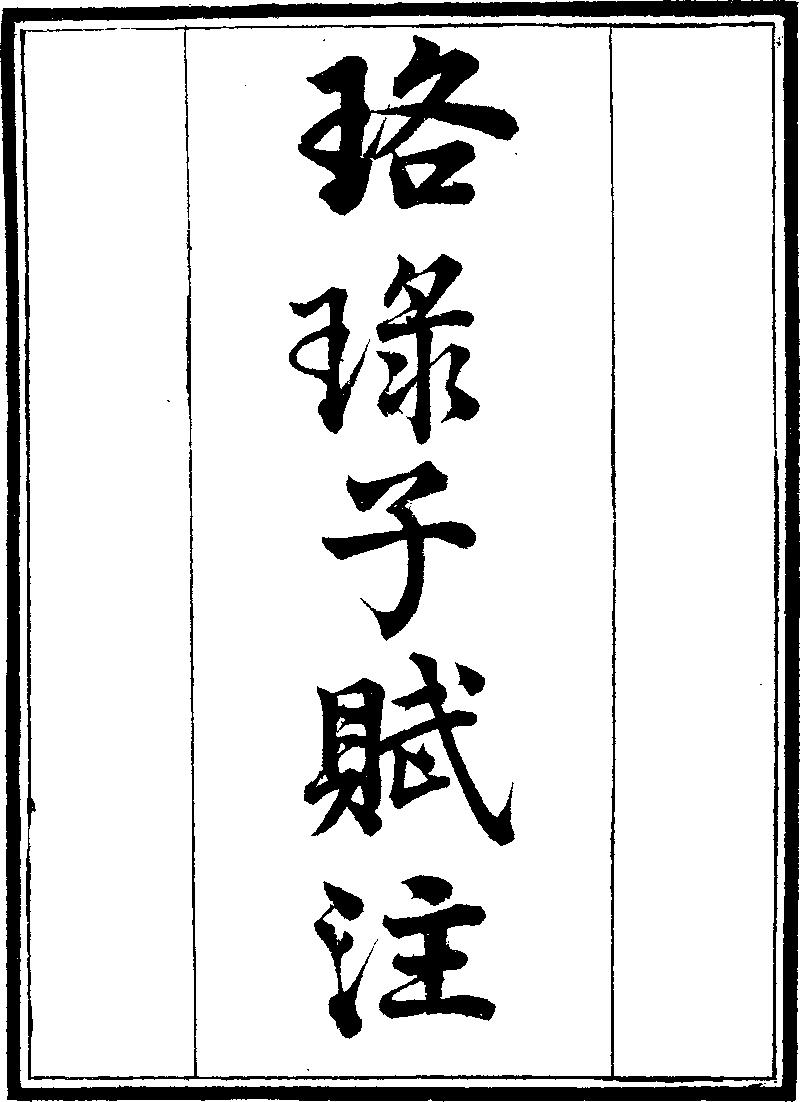 珞琭子賦注